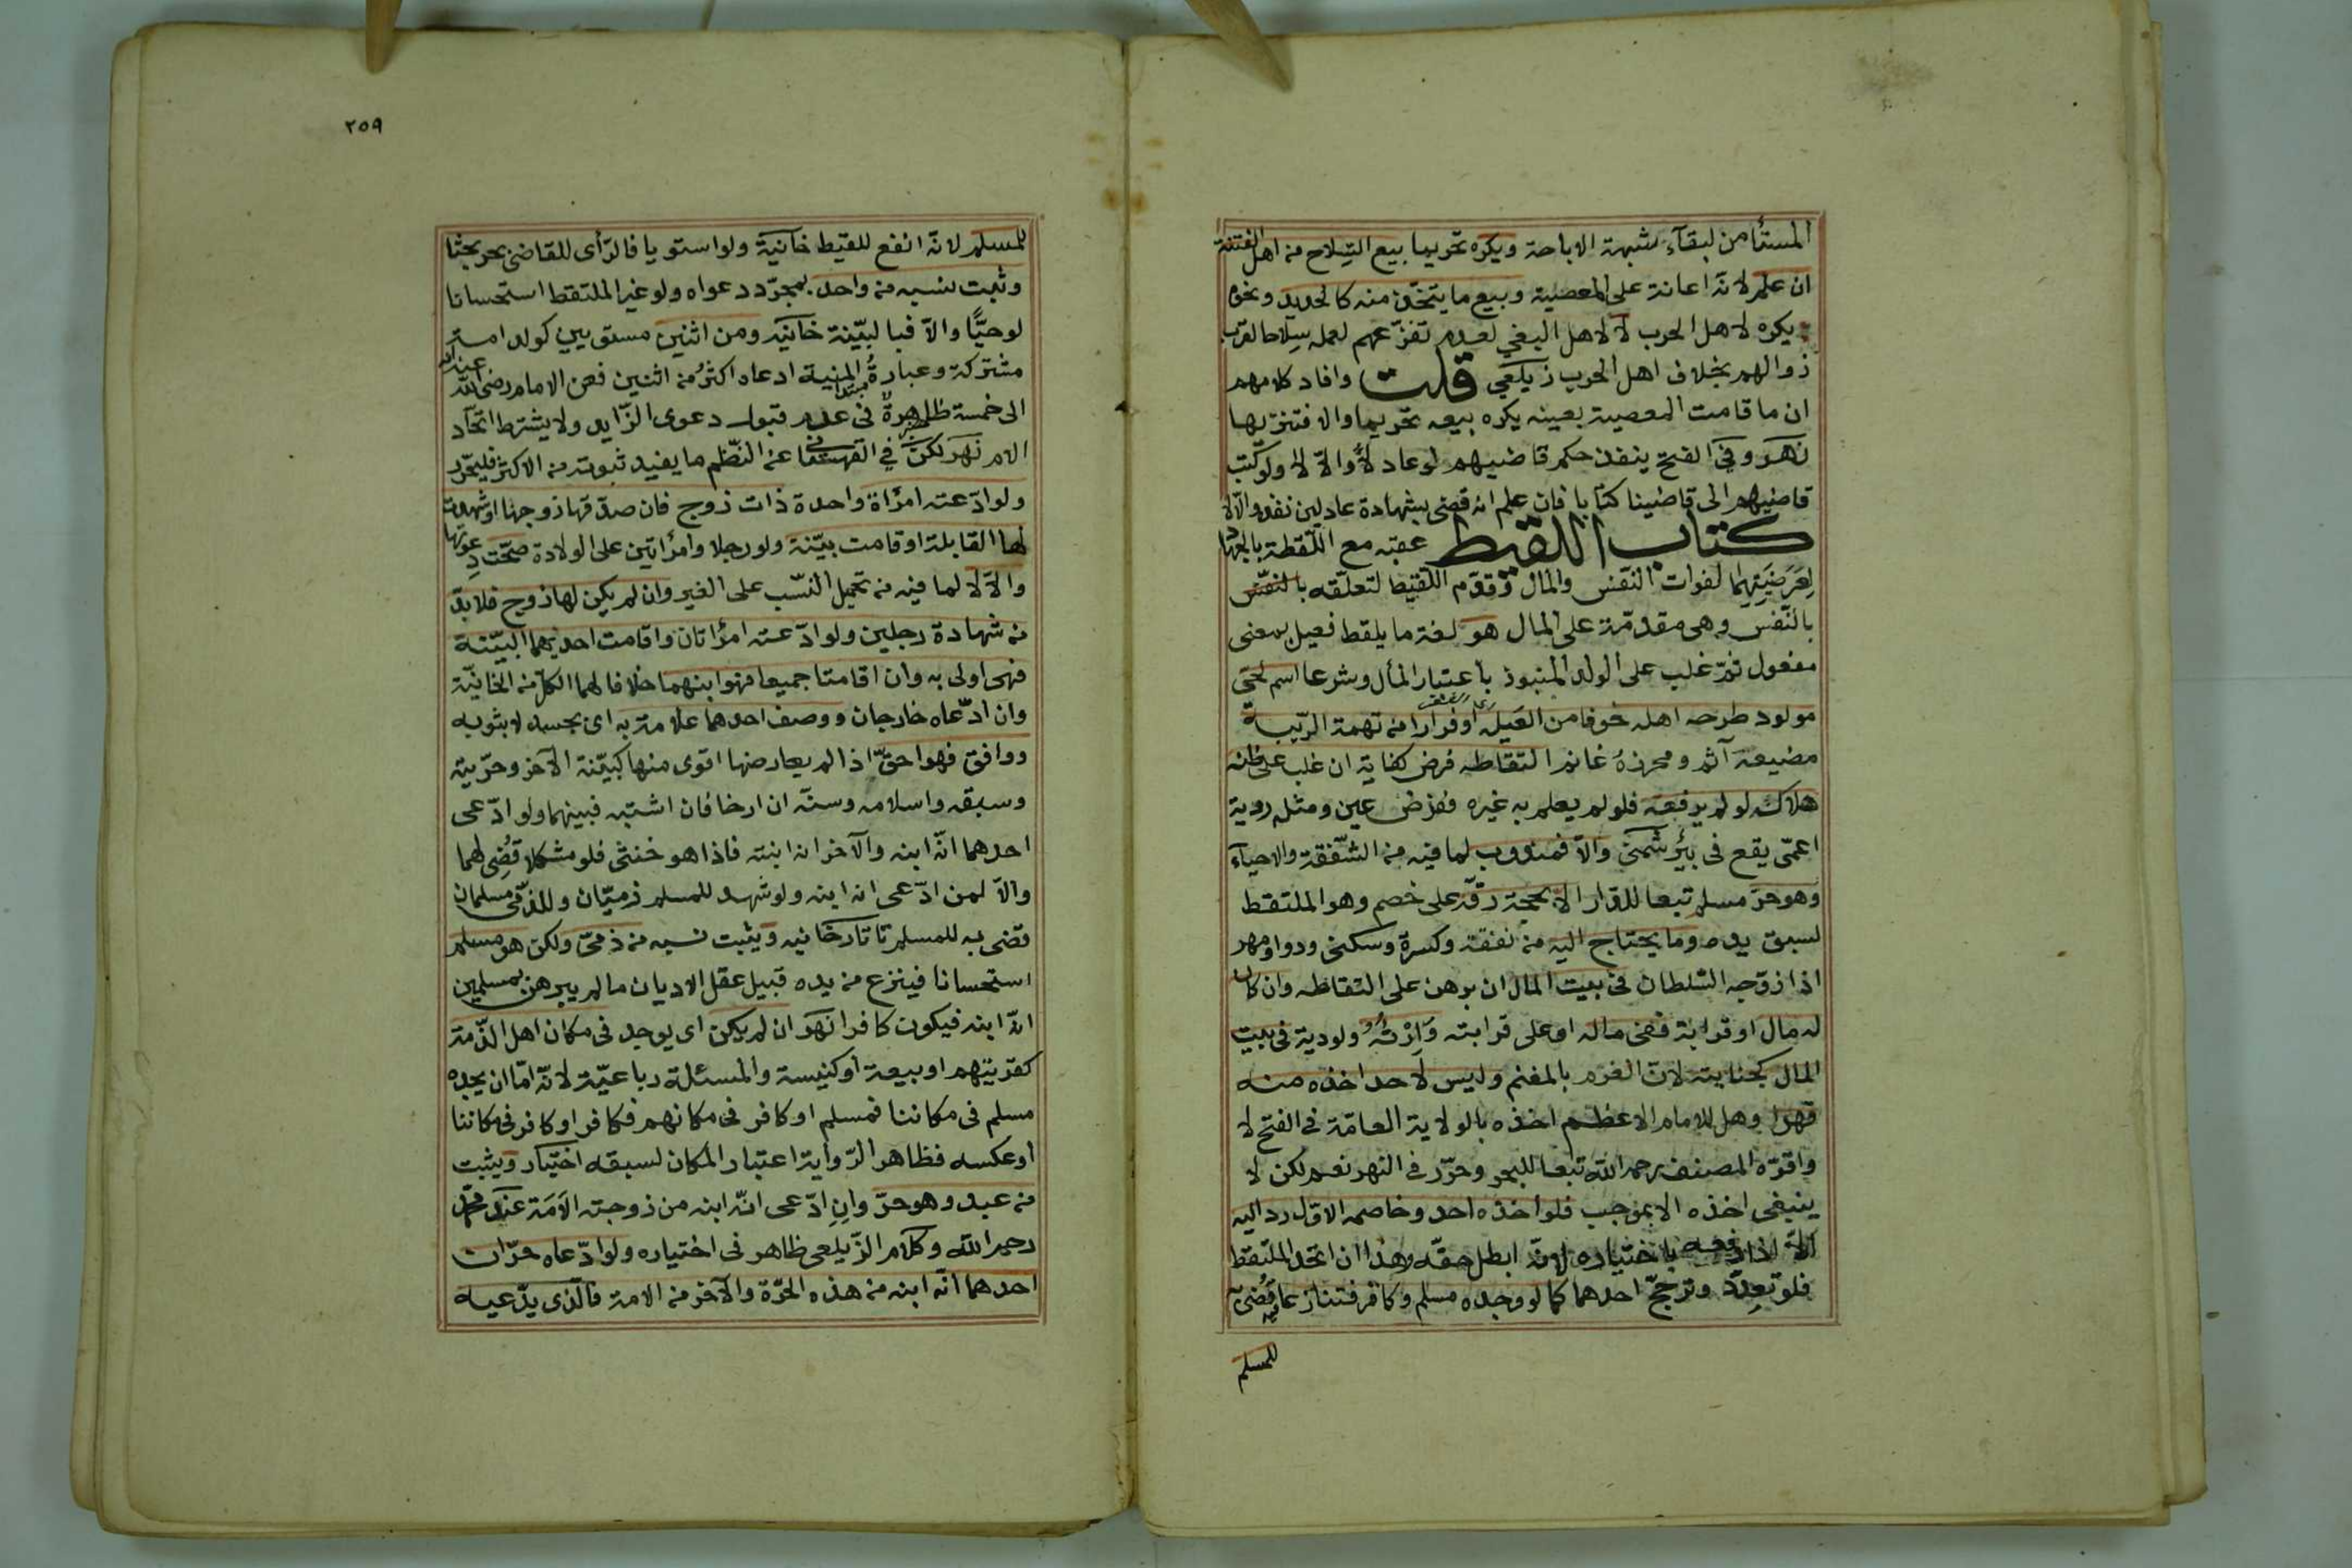 المستأمن لبقاء شبهة الاباحة ويكره تحريما بيع السلاح من اهل الفتنة
ان علم لانه اعانة على المعصية وبيع ما يتخذ منه كالحديد ونحوه
يكره لاهل الحرب لا لاهل البغي لعدم تفرغهم لعمله سلاحا لقرب
زوالهم بخلاف اهل الحرب زيلعي قلت وافاد كلامهم
ان ما قامت المعصية بعينه يكره بيعه تحريما والا فتنزيها
نهر وفي الفتح ينفذ حكم قاضيهم لو عادلا والا لا ولو كتب
قاضيهم الى قاضينا كتابا فان علم انه قضى بشهادة عادلين نفذه والا لا
كتاب اللقيط عقبه مع اللقطة بالجهاد
لعرضيتهما لفوات النفس والمال وقدم اللقيط لتعلقه بالنفس
بالنفس وهي مقدمة على المال هو لغة ما يلقط فعيل بمعنى
مفعول ثم غلب على الولد المنبوذ باعتبار المأل وشرعا اسم لحي
مولود طرحه اهله خوفا من العيلة او فرارا من تهمة الريبة
مضيعه آثم ومحرزه غانم التقاطه فرض كفاية ان غلب على ظنه
هلاكه لو لم يرفعه فلو لم يعلم به غيره ففرض عين ومثله روية
اعمى يقع في بئر شمني والا فمندوب لما فيه من الشفقة والاحياء
وهو حر مسلم تبعا للدار الا بحجة رقه على خصم وهو الملتقط
لسبق يده وما يحتاج اليه من نفقة وكسرة وسكنى ودوا ومهر
اذا زوجه السلطان في بيت المال ان برهن على التقاطه وان كان
له مال او قرابة ففي ماله او على قرابته وارثه ولو دية في بيت
المال كجنايته لان الغرم بالمغنم وليس لاحد اخذه منه
قهرا وهل للامام الاعظم اخذه بالولاية العامة في الفتح لا
واقره المصنف رحمه الله تبعا للبحر وحرر في النهر نعم لكن لا
ينبغي اخذه الا بموجب فلو اخذه احد وخاصمه الاول رد اليه
الا اذا دفعه باختياره لانه ابطل حقه وهذا ان اتحد الملتقط
فلو تعدد وترجح احدهما كما لو وجده مسلم وكافر فتنازعا قضي به
للمسلم
٢٥٩
للمسلم لانه انفع للقيط خانية ولو استويا فالرأى للقاضي بحر بحثا
وثبت نسبه من واحد بمجرد دعواه ولو غير الملتقط استحسانا
لو حيا والا فبالبينة خانيه ومن اثنين مستويين كولد امة
مشتركة وعبارة المنية ادعاه اكثر من اثنين فعن الامام رضى الله عنه انه
الى خمسة ظاهرة في عدم قبول دعوى الزايد ولا يشترط اتحاد
الام نهر لكن في القهستاني عن النظم ما يفيد ثبوته من الاكثر فليحرر
ولو ادعته امرأة واحدة ذات زوج فان صدقها زوجها او شهدت
لها القابلة او قامت بينة ولو رجلا وامرأتين على الولادة صحت دعوتها
والا لا لما فيه من تحميل النسب على الغير وان لم يكن لها زوج فلا بد
من شهادة رجلين ولو ادعته امرأتان واقامت احديهما البينة
فهى اولى به وان اقامتا جميعا فهو ابنهما خلافا لهما الكل من الخانية
وان ادعاه خارجان ووصف احدهما علامة به اى بجسده لا بثوبه
ووافق فهو احق اذا لم يعارضها اقوى منها كبينة الآخر وحريته
وسبقه واسلامه وسنه ان ارخا فان اشتبه فبينهما ولو ادعى
احدهما انه ابنه والآخر انه ابنته فاذا هو خنثى فلو مشكلا قضى لهما
والا لمن ادعى انه ابنه ولو شهد للمسلم ذميان وللذمى مسلمان
قضى به للمسلم تاتارخانيه ويثبت نسبه من ذمى ولكن هو مسلم
استحسانا فينزع من يده قبيل عقل الاديان ما لم يبرهن بمسلمين
انه ابنه فيكون كافرا نهر ان لم يكن اى يوجد في مكان اهل الذمة
كقريتهم او بيعة او كنيسة والمسئلة رباعية لانه اما ان يجده
مسلم في مكاننا فمسلم او كافر في مكانهم فكافر او كافر في مكاننا
او عكسه فظاهر الرواية اعتبار المكان لسبقه اختيار ويثبت
من عبد وهو حر وان ادعى انه ابنه من زوجته الامة عند محمد
رحمه الله وكلام الزيلعى ظاهر في اختياره ولو ادعاه حران
احدهما انه ابنه من هذه الحرة والآخر من الامة فالذى يدعيه